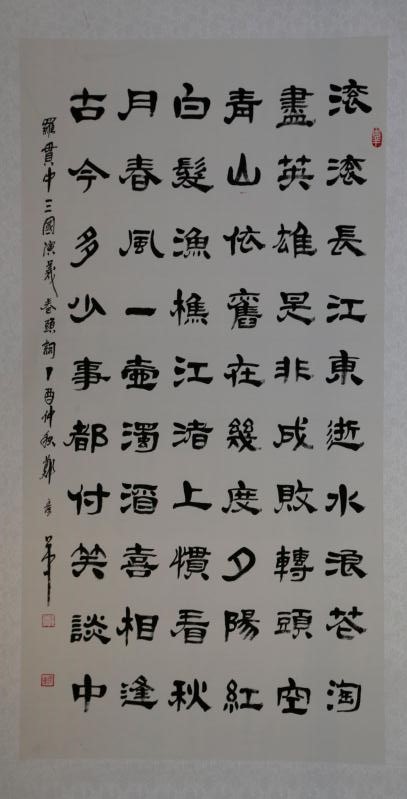 滚滚長江東逝水浪花淘
盡英雄是非成敗轉頭空
青山依舊在幾度夕陽紅
白髮漁樵江渚上慣看秋
月春風一壺濁酒喜相逢
古今多少事都付笑談中
羅貫中三國演義卷頭詞丁酉仲秋鄭